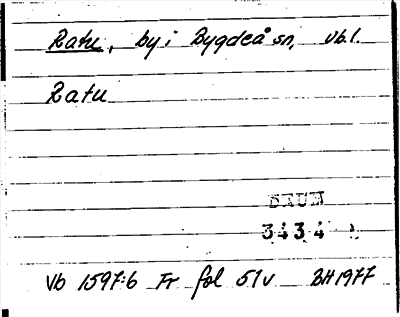 Ratu, by i Bygdeå sn, vb.l.
Ratu
DAUM
3434
Vb 1597:6 Fr fol 51v BH 1977